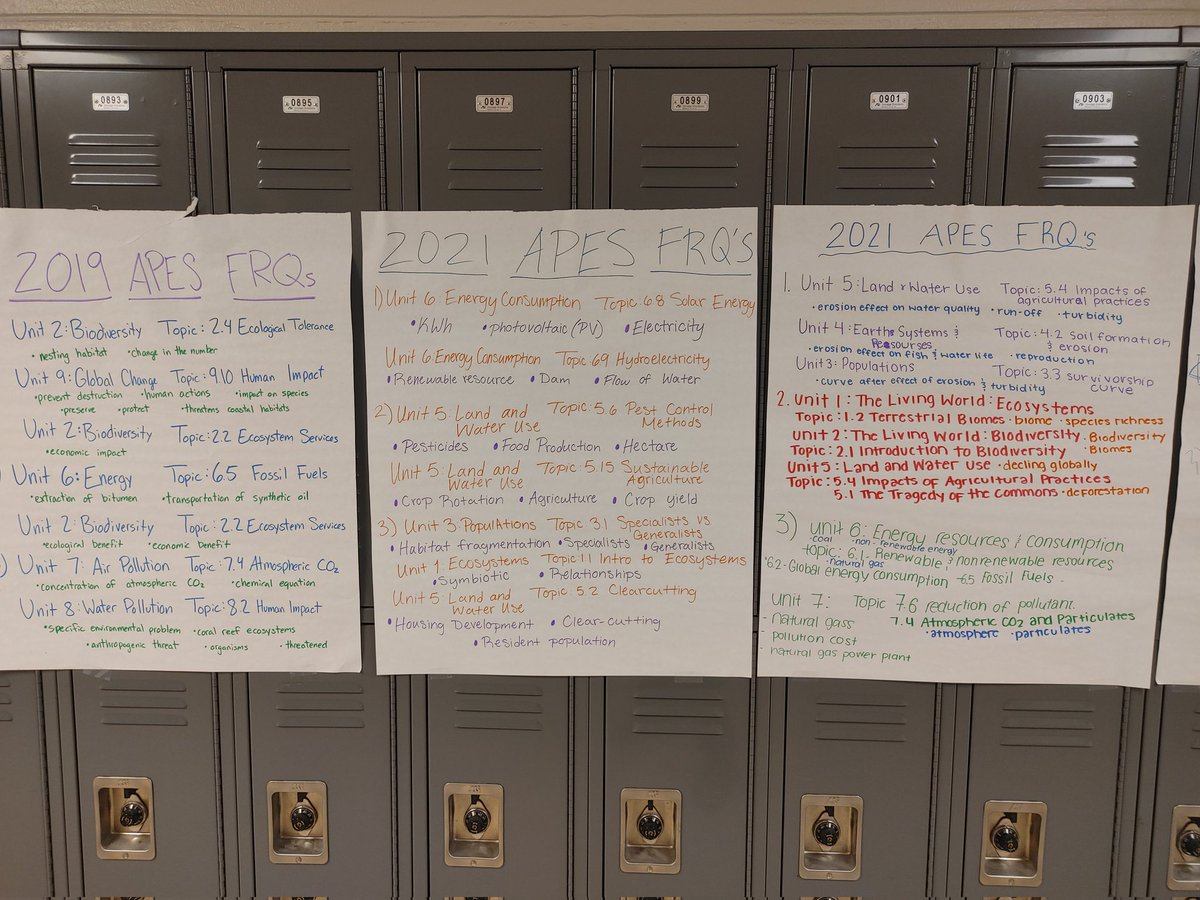 0893
0895
0897
0899
0901
0903
2019 APES FRQs
Unit 2: Biodiversity Topic: 2.4 Ecological Tolerance
• nesting habitat • change in the number
Unit 9: Global Change Topic: 9.10 Human Impact
• prevent destruction • human actions • impact on species
• preserve • protect • threatens coastal habitats
Unit 2: Biodiversity Topic: 2.2 Ecosystem Services
• economic impact
Unit 6: Energy Topic: 6.5 Fossil Fuels
• extraction of bitumen • transportation of synthetic oil
Unit 2: Biodiversity Topic: 2.2 Ecosystem Services
• ecological benefit • economic benefit
Unit 7: Air Pollution Topic: 7.4 Atmospheric CO2
• concentration of atmospheric CO2 • chemical equation
Unit 8: Water Pollution Topic: 8.2 Human Impact
• specific environmental problem • coral reef ecosystems
• anthropogenic threat • organisms • threatened
2021 APES FRQ'S
1) Unit 6 Energy Consumption Topic: 6.8 Solar Energy
• KWh • photovoltaic (PV) • Electricity
Unit 6 Energy Consumption Topic 6.9 Hydroelectricity
• Renewable resource • Dam • Flow of Water
2) Unit 5: Land and Water Use Topic: 5.6 Pest Control Methods
• Pesticides • Food Production • Hectare
Unit 5: Land and Water Use Topic: 5.15 Sustainable Agriculture
• Crop Rotation • Agriculture • Crop yield
3) Unit 3: Populations Topic 3.1 Specialists vs Generalists
• Habitat fragmentation • Specialists • Generalists
Unit 1: Ecosystems Topic 1.1 Intro to Ecosystems
• Symbiotic • Relationships
Unit 5: Land and Water Use Topic: 5.2 Clearcutting
• Housing Development • Clear-cutting
• Resident population
2021 APES FRQ's
1. Unit 5: Land & Water Use Topic: 5.4 Impacts of agricultural practices
• erosion effect on water quality • run-off • turbidity
Unit 4: Earths Systems & Resourses Topic: 4.2 soil formation & erosion
• erosion effect on fish & water life • reproduction
Unit 3: Populations Topic: 3.3 survivorship curve
• curve after effect of erosion & turbidity
2. Unit 1: The Living World: Ecosystems
Topic: 1.2 Terrestrial Biomes • biome • species richness
Unit 2: The Living World: Biodiversity • Biodiversity
Topic: 2.1 Introduction to Biodiversity • Biomes
Unit 5: Land and Water Use • decling globally
Topic: 5.4 Impacts of Agricultural Practices
5.1 The Tragedy of the Commons • deforestation
3) Unit 6: Energy resources & consumption
• coal • non-renewable energy
topic: 6.1. Renewable & nonrenewable resources
• natural gas
6.2 - Global energy consumption - 6.5 Fossil Fuels
Unit 7: Topic 7.6 reduction of pollutant.
- natural gass 7.4 Atmospheric CO2 and Particulates
pollution cost • atmosphere • particulates
- natural gas power plant